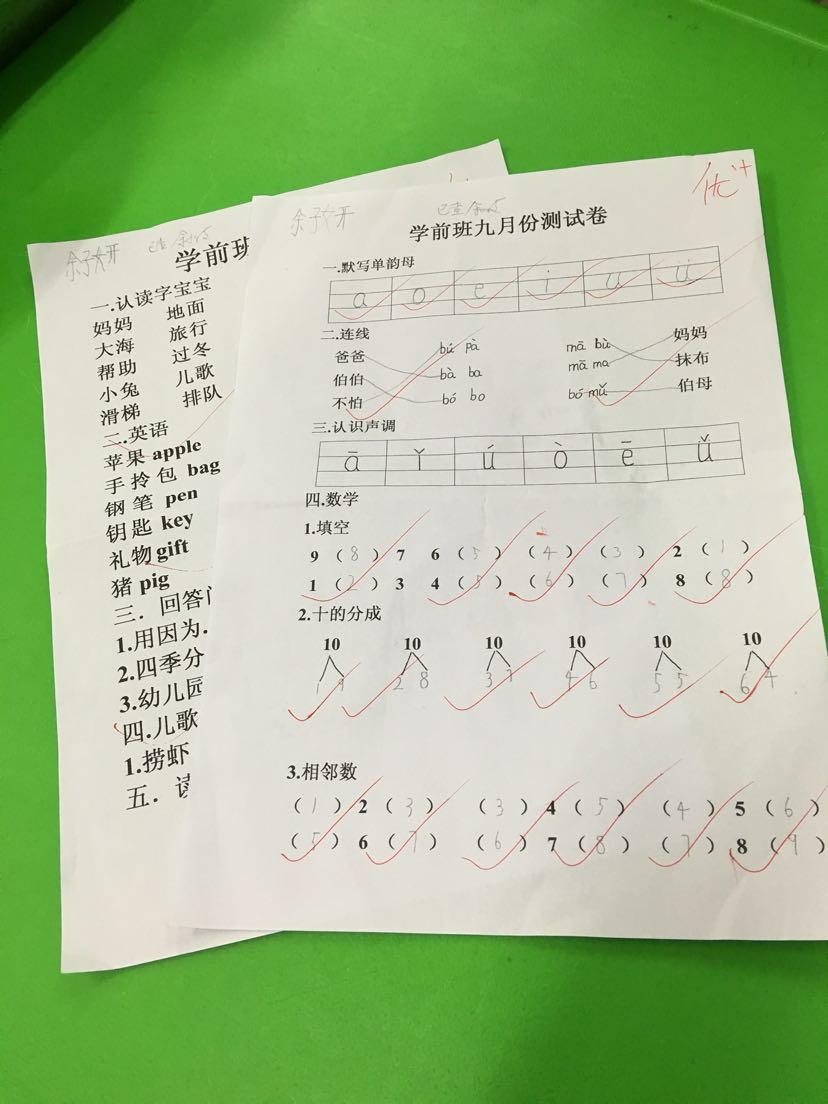 学前班
一.认读字宝宝
妈妈 地面
大海 旅行
帮助 过冬
小兔 儿歌
滑梯 排队
二.英语
苹果 apple
手拎包 bag
钢笔 pen
钥匙 key
礼物 gift
猪 pig
三. 回答
1.用因为.
2.四季分
3.幼儿园
四.儿歌
1.捞虾
五.
优+
学前班九月份测试卷
一.默写单韵母
a o e i u ü
二.连线
爸爸 bú pà mā bù 妈妈
伯伯 bà ba mā ma 抹布
不怕 bó bo bó mǔ 伯母
三.认识声调
ā ǐ ú ò ē ǚ
四.数学
1.填空
9（8）7 6（5）（4）（3）2（1）
1（2）3 4（5）（6）（7）8（8）
2.十的分成
10 10 10 10 10 10
1 9 2 8 3 7 4 6 5 5 6 4
3.相邻数
（1）2（3）（3）4（5）（4）5（6）
（5）6（7）（6）7（8）（7）8（9）